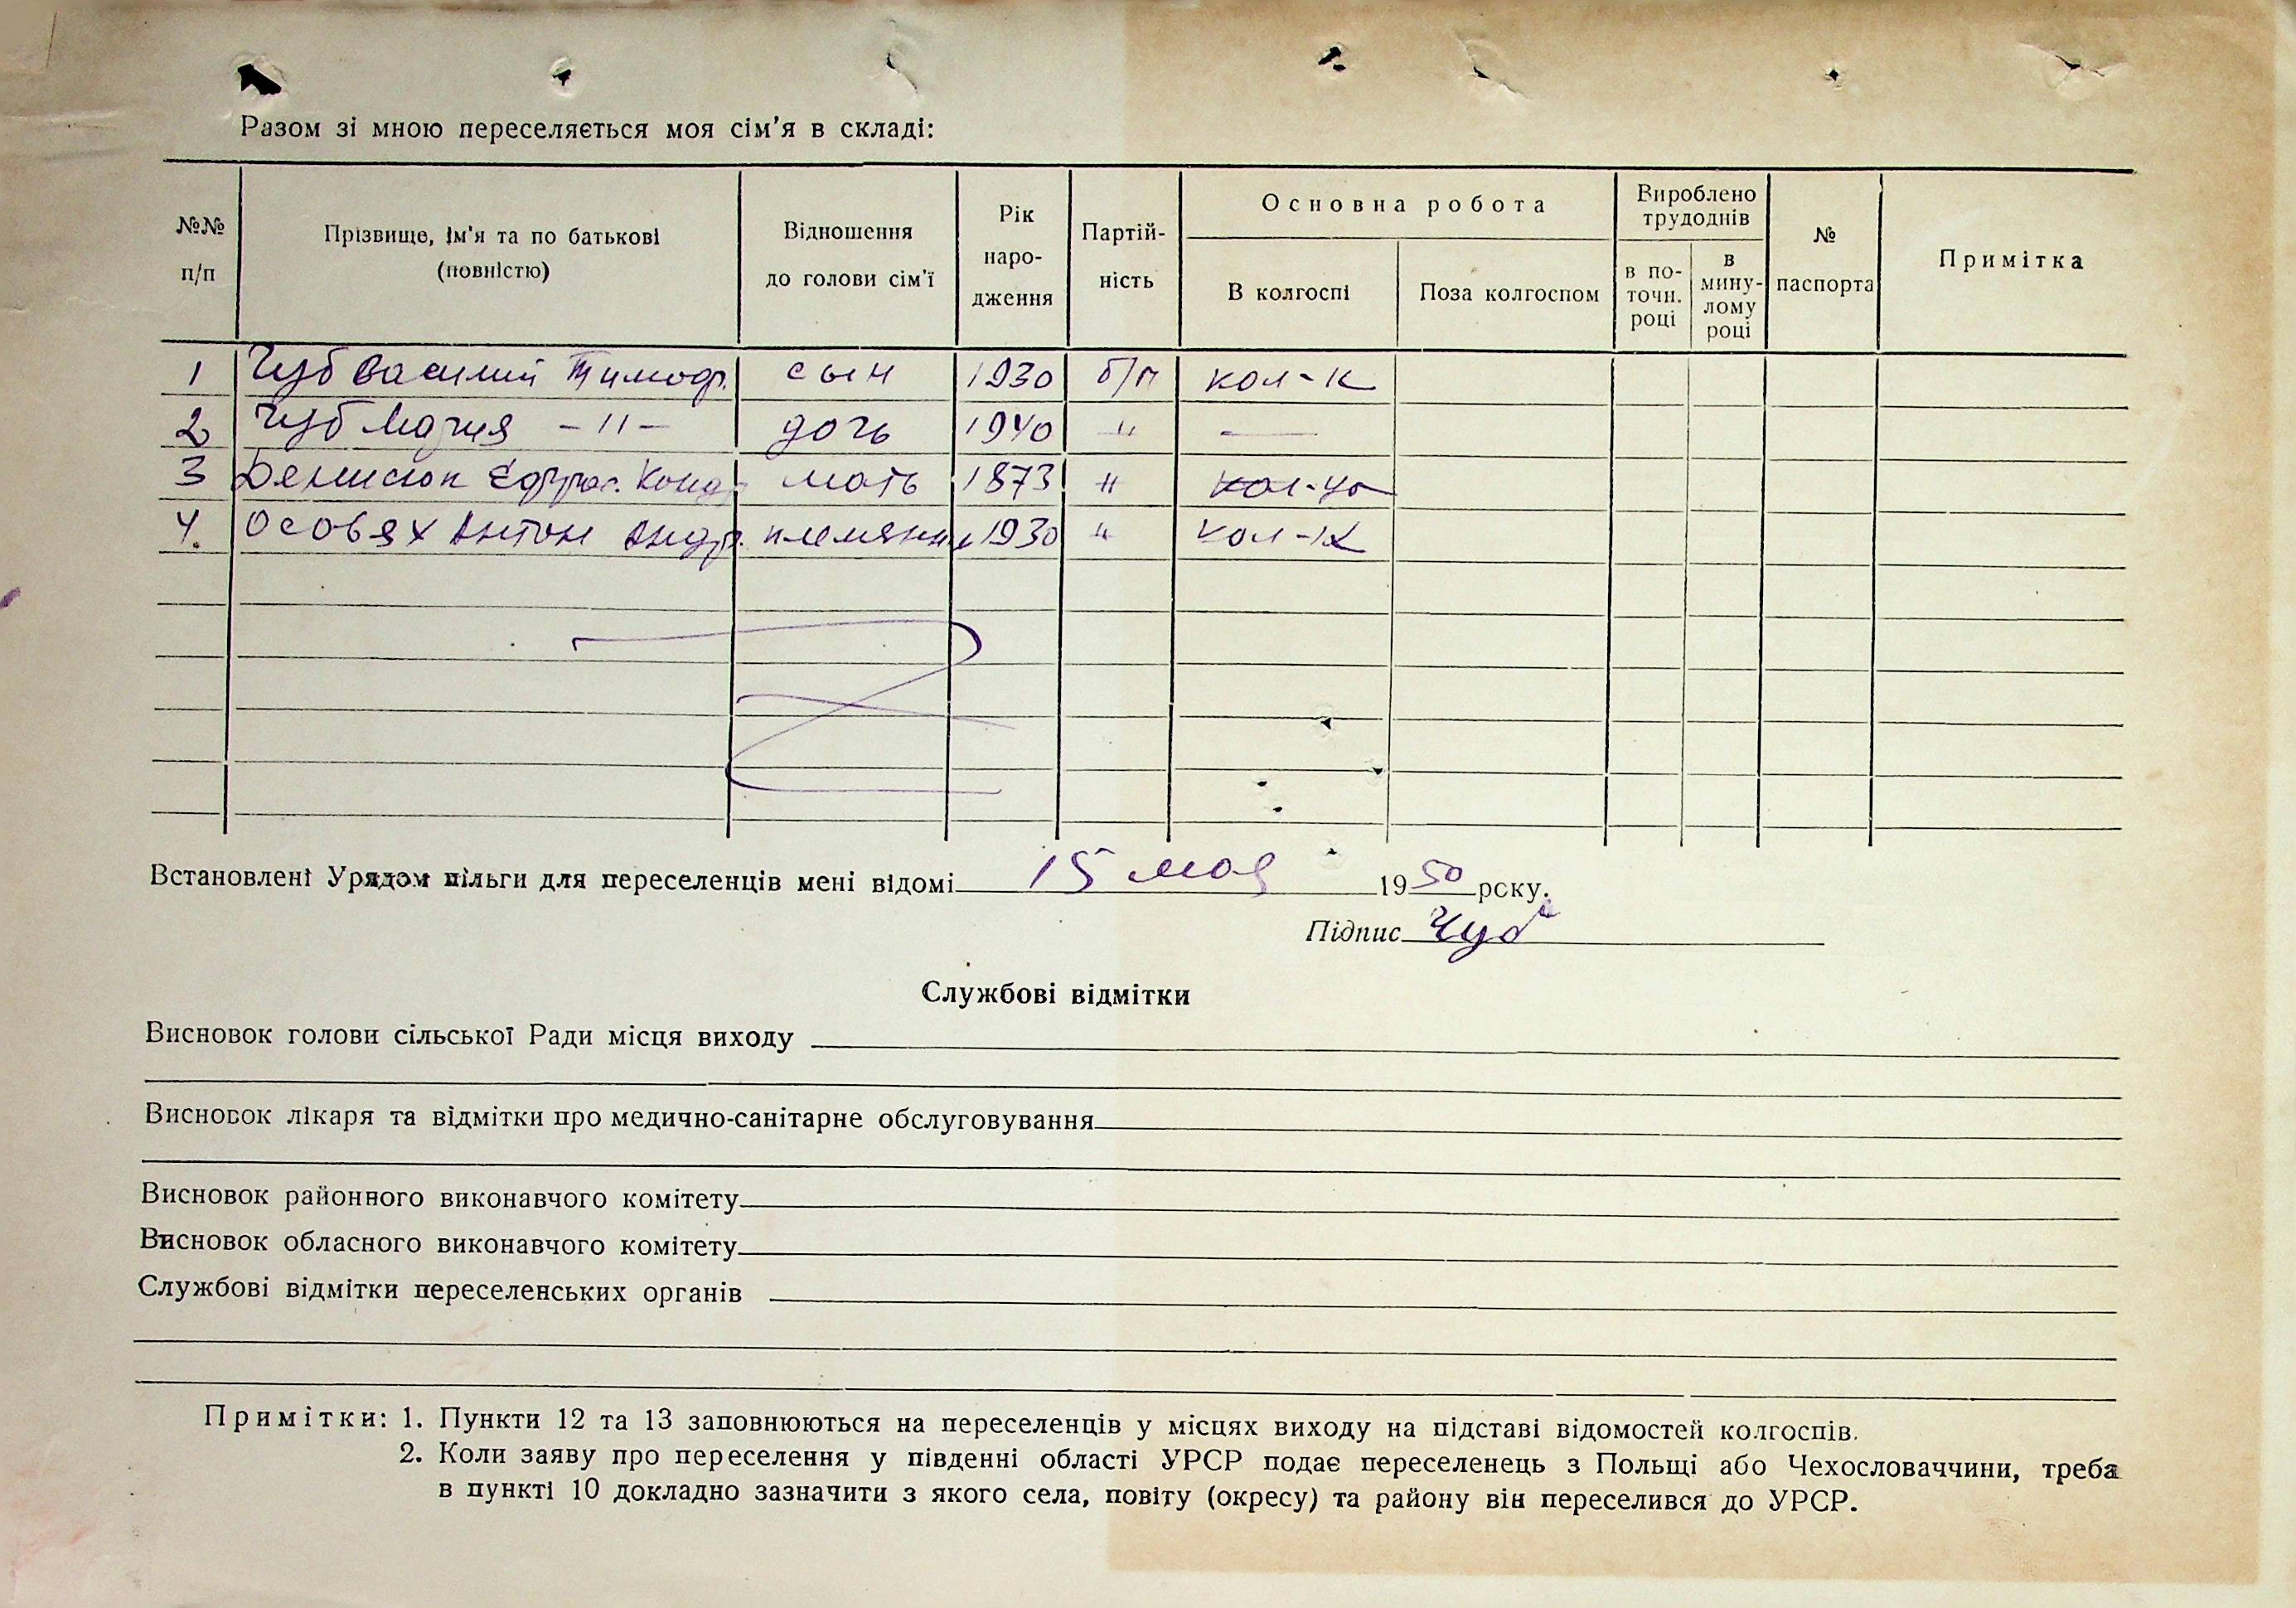 Разом зі мною переселяється моя сім'я в складі:
№№ п/п | Прізвище, ім'я та по батькові (повністю) | Відношення до голови сім'ї | Рік народження | Партійність | Основна робота | Вироблено трудоднів | № паспорта | Примітка
В колгоспі | Поза колгоспом | в поточн. році | в минулому році
1 Чуб Василий Тимоф. сын 1930 б/п кол-к
2 Чуб Мария –〃– дочь 1940 〃 —
3 Денисюк Ефрос. Конд. мать 1873 〃
4. Особях Антон Андр. племянник 1930 〃 кол-к
Встановлені Урядом пільги для переселенців мені відомі 15 мая 1950 року.
Підпис Чуб
Службові відмітки
Висновок голови сільської Ради місця виходу
Висновок лікаря та відмітки про медично-санітарне обслуговування
Висновок районного виконавчого комітету
Висновок обласного виконавчого комітету
Службові відмітки переселенських органів
Примітки: 1. Пункти 12 та 13 заповнюються на переселенців у місцях виходу на підставі відомостей колгоспів.
2. Коли заяву про переселення у південні області УРСР подає переселенець з Польщі або Чехословаччини, треба
в пункті 10 докладно зазначити з якого села, повіту (окресу) та району він переселився до УРСР.